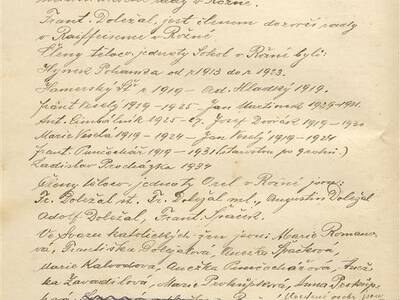 rady v Rožné.
Frant. Doležal, jest členem dozorčí rady
v Raiffeisence v Rožné
Členy těloc. jednoty Sokol v Rožné byli:
Hynek Pohanka od r 1913 do r 1923.
r 1919 – Ad. Mladský 1919.
Frant Veselý 1919 – 1925 – Jan Martinek 1929-
Ant. 1925 – Josef Dvořák 1919 – 1920
Marie Veselá 1919 – 1924 – Jan Veselý 1919 – 1924
Frant. Punčochář 1919 – 1931
Ladislav Procházka 1934
Členy těloc. jednoty Orel v Rožné jsou:
Fr. Doležal st. Fr. Doležal ml., Augustin Doležal
Adolf Doležal, Frant. Špaček.
Ve svazu katolických žen jsou: Marie Roman-
ová, Františka Doležalová, Anežka Špačková,
Marie Kalvodová, Anežka Punčochářová, Anež-
ka Zavadilová, Marie Anna